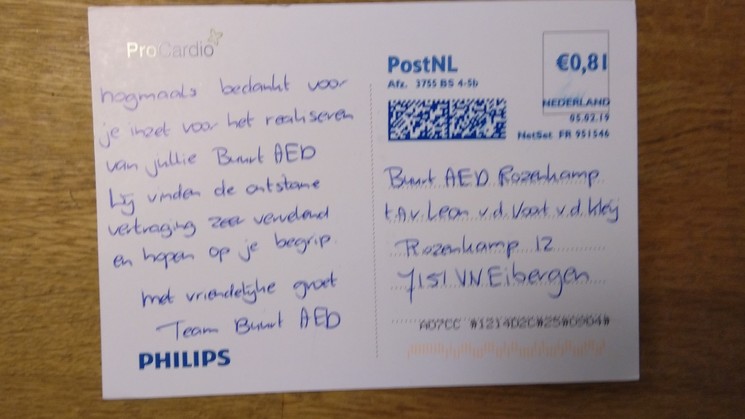 ProCardio
nogmaals bedankt voor
je inzet voor het realiseren
van jullie Buurt AED
Wij vinden de ontstane
vertraging zeer vervelend
en hopen op je begrip.
Met vriendelijke groet
Team Buurt AED
PHILIPS
PostNL
€0,81
Afz. 3755 BS 4-5b
NEDERLAND
05.02.19
NetSet FR 951546
Buurt AED Rozenkamp
t.a.v. Leon v.d. Voort v.d. Kleij
Rozenkamp 12
7151 VN Eibergen
A07CC #121402C#25#0904#